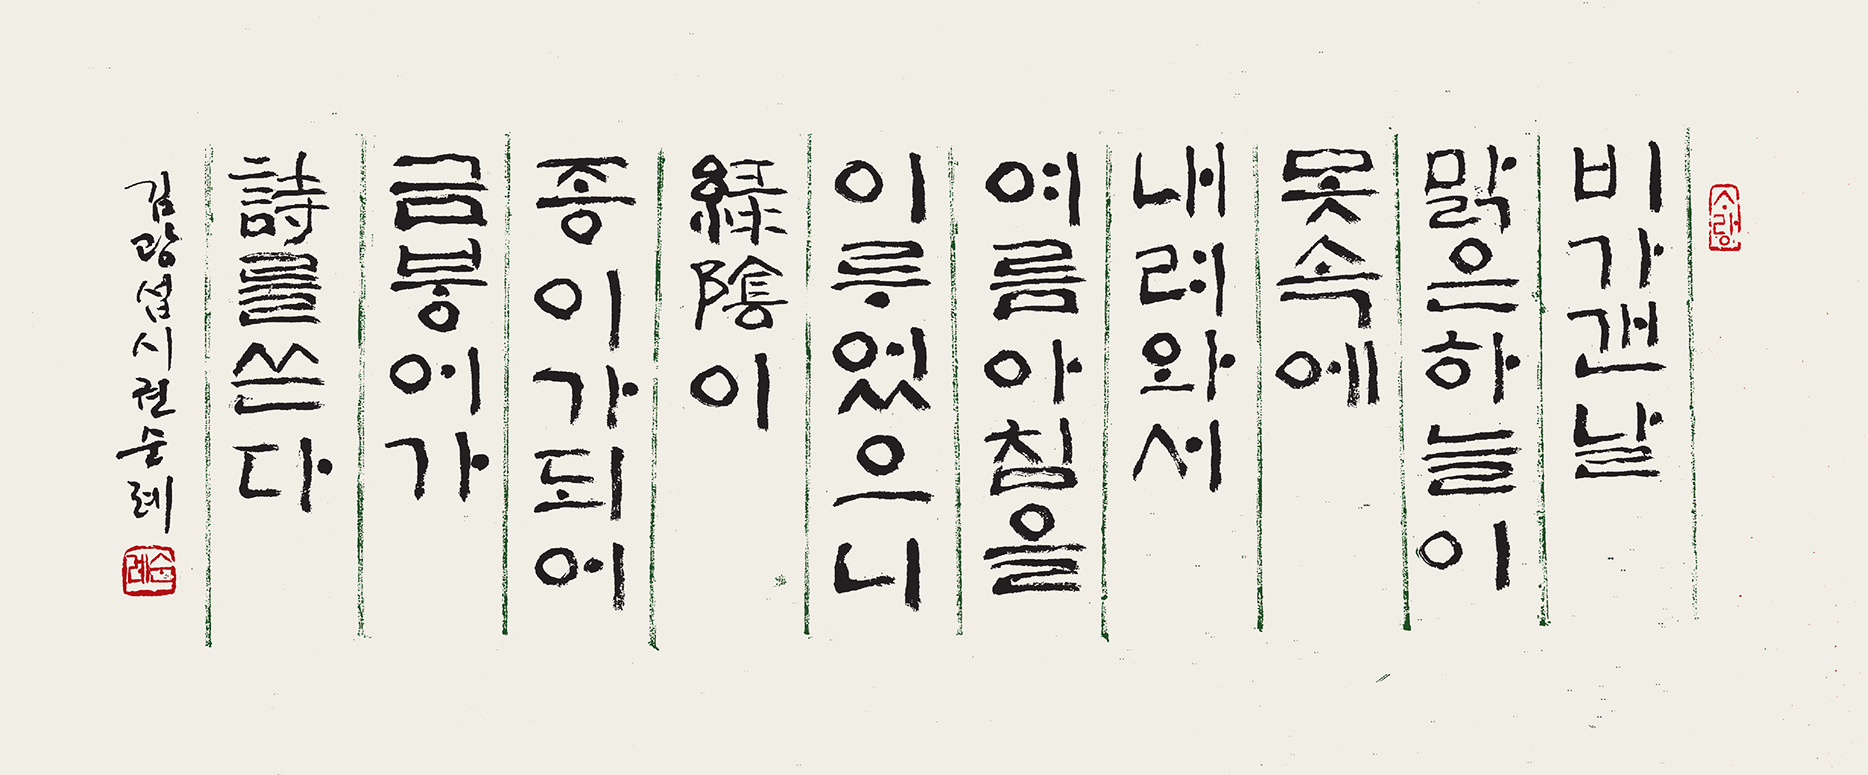 비가갠날
맑은하늘이
못속에
내려와서
여름아침을
이루었으니
綠陰이
종이가되어
금붕어가
詩를쓴다
김광섭시권순례
순례